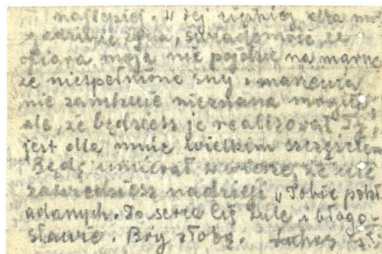 najlepiej. W tej ciężkiej dla mnie
godzinie życia, świadomość że
ofiara moja nie pójdzie na marne
że niespełnione sny i marzenia
nie zamknie nieznana mogiła
ale, że będziesz je realizował Ty,
jest dla mnie wielkim szczęściem
Będę umierał w wierze, że nie
zawiedziesz nadziei w Tobie pokł
adanych. Do serca Cię tulę i błogo-
sławię. Bóg z Tobą.